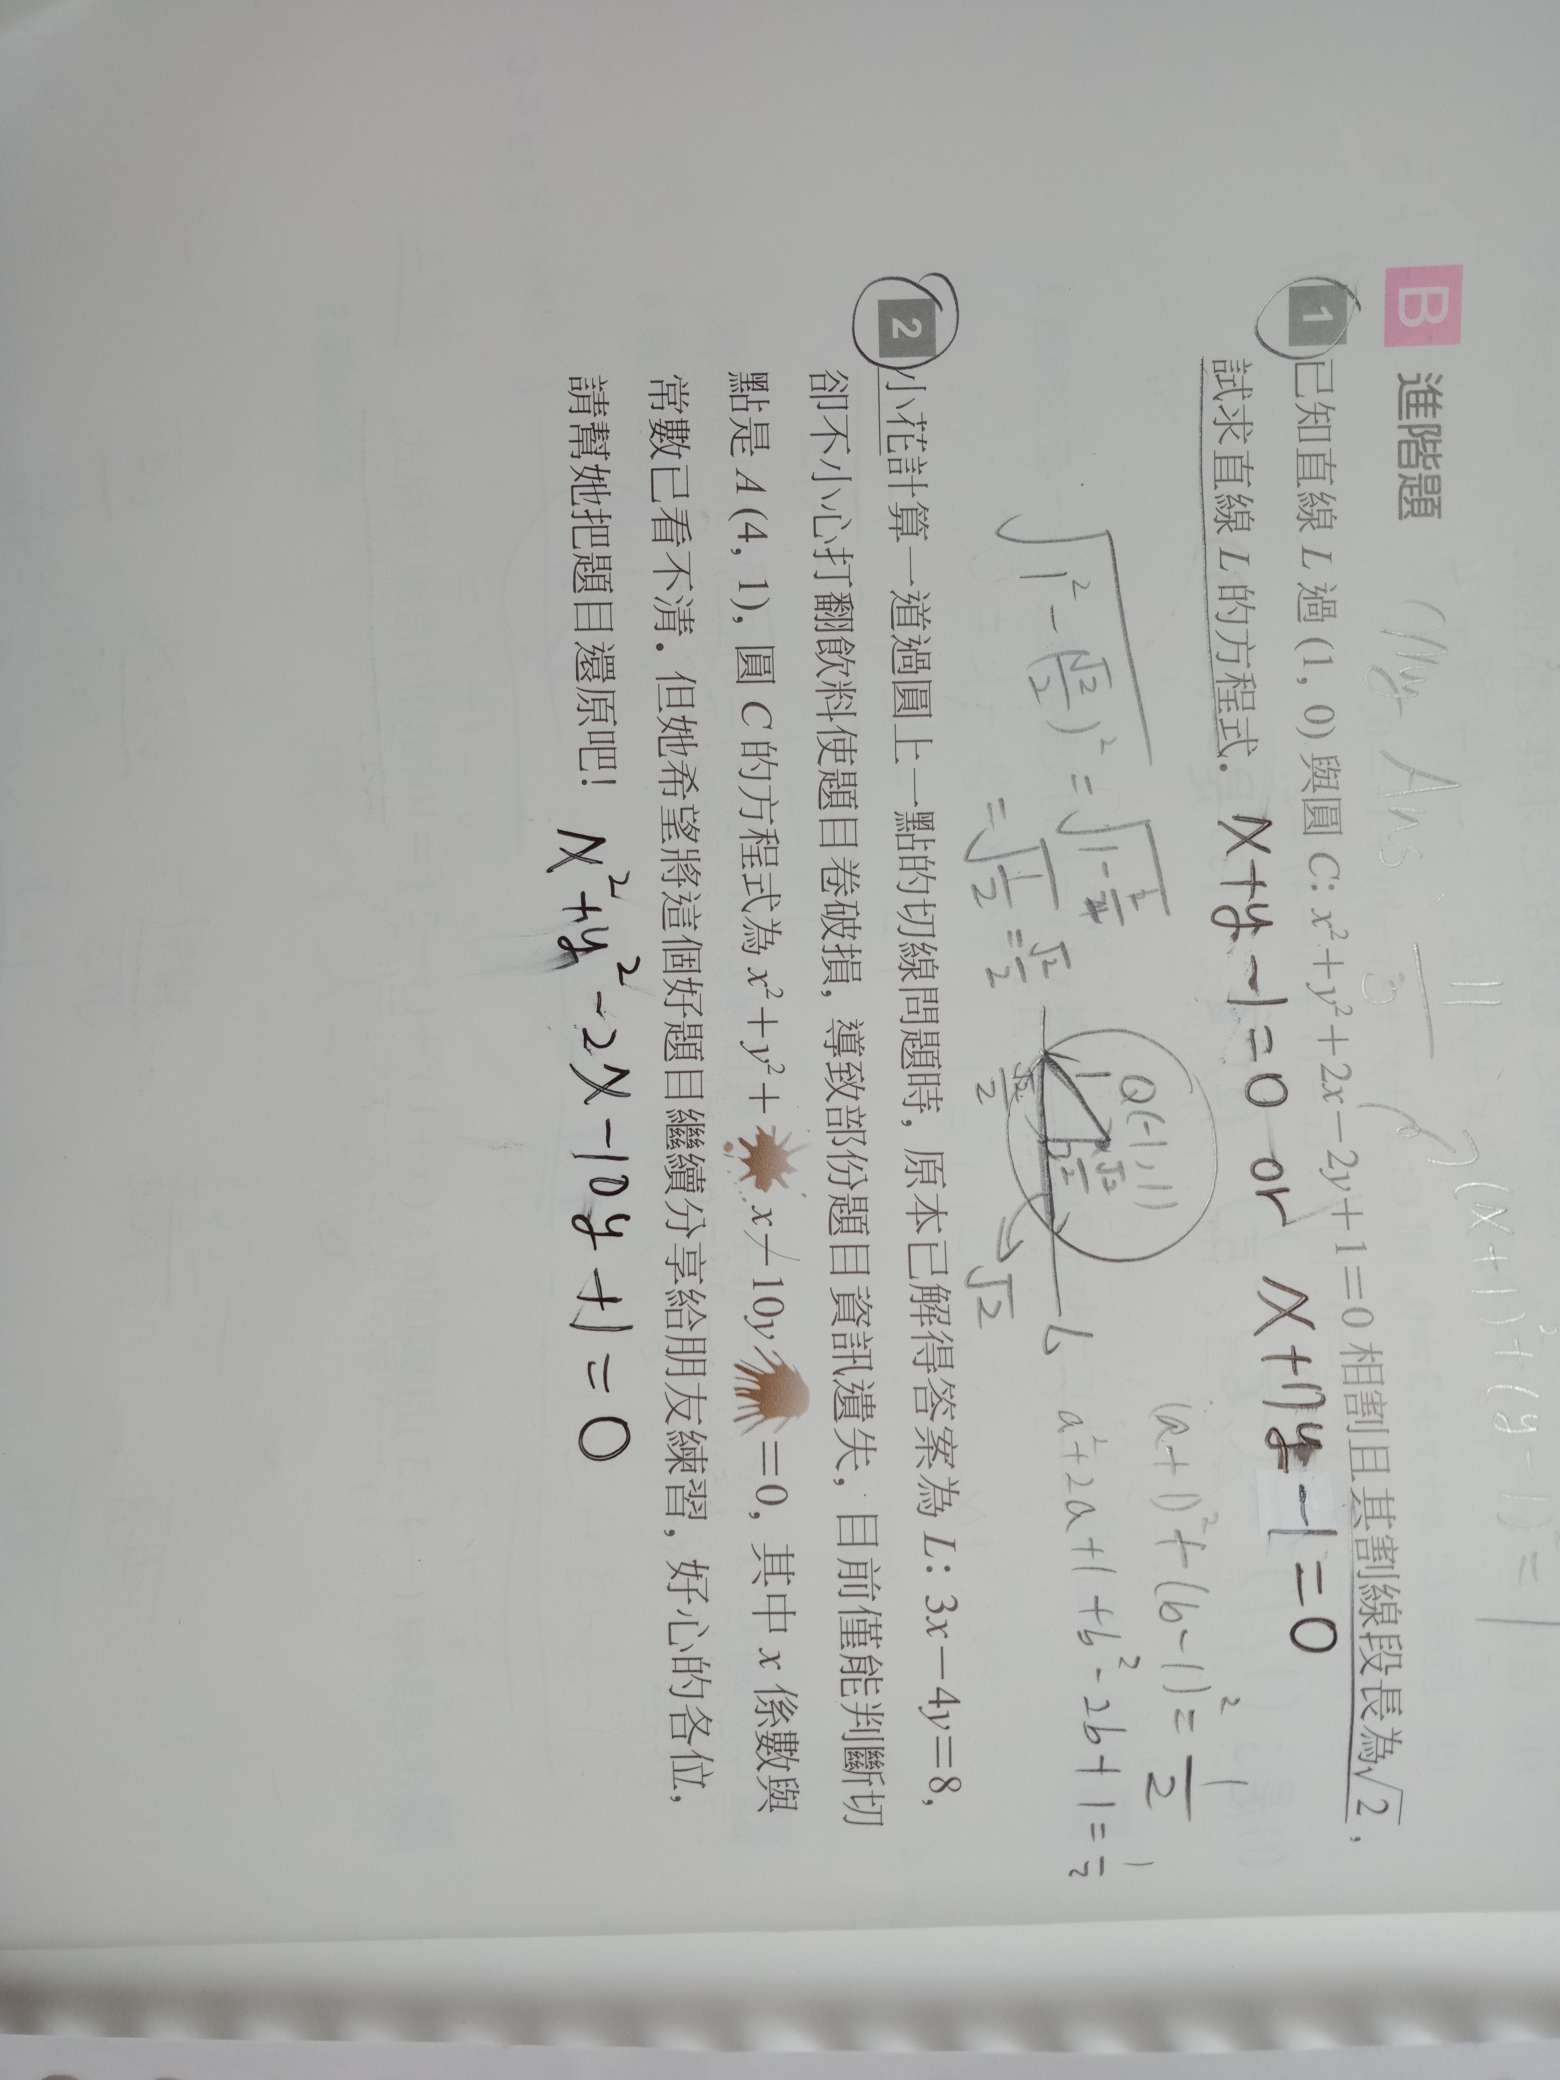 (x+1)²+(y-1)²=1
B 進階題
1 已知直線 L 過 (1, 0) 與圓 C: x²+y²+2x-2y+1=0 相割且其割線段長為√2，
試求直線 L 的方程式. x+y-1=0 or x+7y-1=0
Q(-1,1)
(a+1)²+(b-1)²=1/2
√(1²-(√2/2)²)=√(1-
=√(1/2)=√2/2
1
√2/2
L
→√2
a²+2a+1+b²-2b+1=1/2
2 小花計算一道過圓上一點的切線問題時，原本已解得答案為 L: 3x-4y=8，
卻不小心打翻飲料使題目卷破損，導致部份題目資訊遺失，目前僅能判斷切
點是 A (4, 1)，圓 C 的方程式為 x²+y²+ x-10y =0，其中 x 係數與
常數已看不清．但她希望將這個好題目繼續分享給朋友練習，好心的各位，
請幫她把題目還原吧! x²+y²-2x-10y+1=0